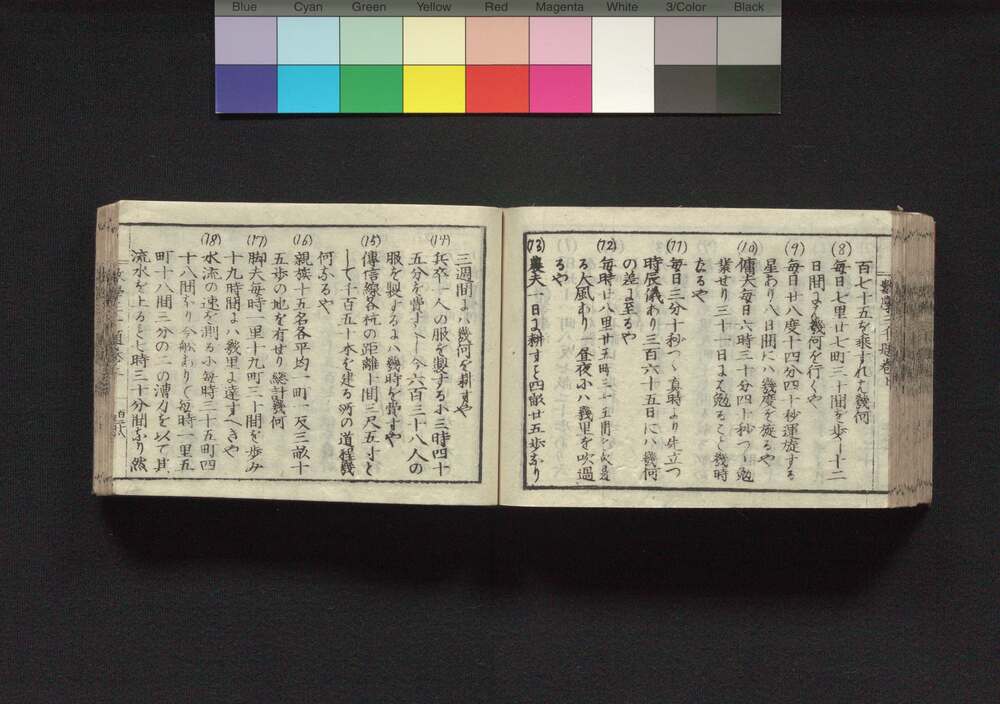 Blue Cyan Green Yellow Red Magenta White 3/Color Black
百七十五を乗すれは幾何
(8) 毎日七里廿七町三十間を歩し十二
日間よハ幾何を行くや
(9) 毎日廿八度十四分四十秒運旋する
星あり八日間にハ幾度を旋るや
(10) 傭夫毎日六時三十分四十秒つゝ勉
業せり三十一日よハ勉ること幾時
なるや
(11) 毎日三分十秒つゝ真時より先立つ
時辰儀あり三百六十五日にハ幾何
の差よ至るや
(12) 毎時廿八里廿五町三十五間を
る大風あり一昼夜にハ幾里を吹過
るや
(13) 農夫一日よ耕すこと四畝廿五歩なり
三週間よハ幾何を耕すや
(14) 兵卒一人の服を製する小三時四十
五分を費すとし今六百三十八人の
服を製するよハ幾時を費すや
(15) 傳信線各杭の距離十間三尺五寸と
して千百五十本を建る所の道程幾
何なるや
(16) 親族十五名各平均一町一反三畝十
五歩の地を有せり総計幾何
(17) 脚夫毎時一里十九町三十間を歩み
十九時間よハ幾里よ達すへきや
(18) 水流の速を測る小毎時三十五町四
十八間なり今船ありて毎時一里五
町十八間三分の二の漕力を以て其
流水を上ること七時三十分間なり然